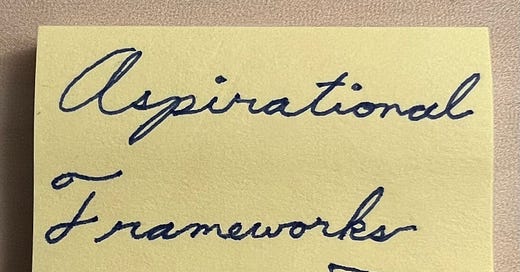 Aspirational
Frameworks